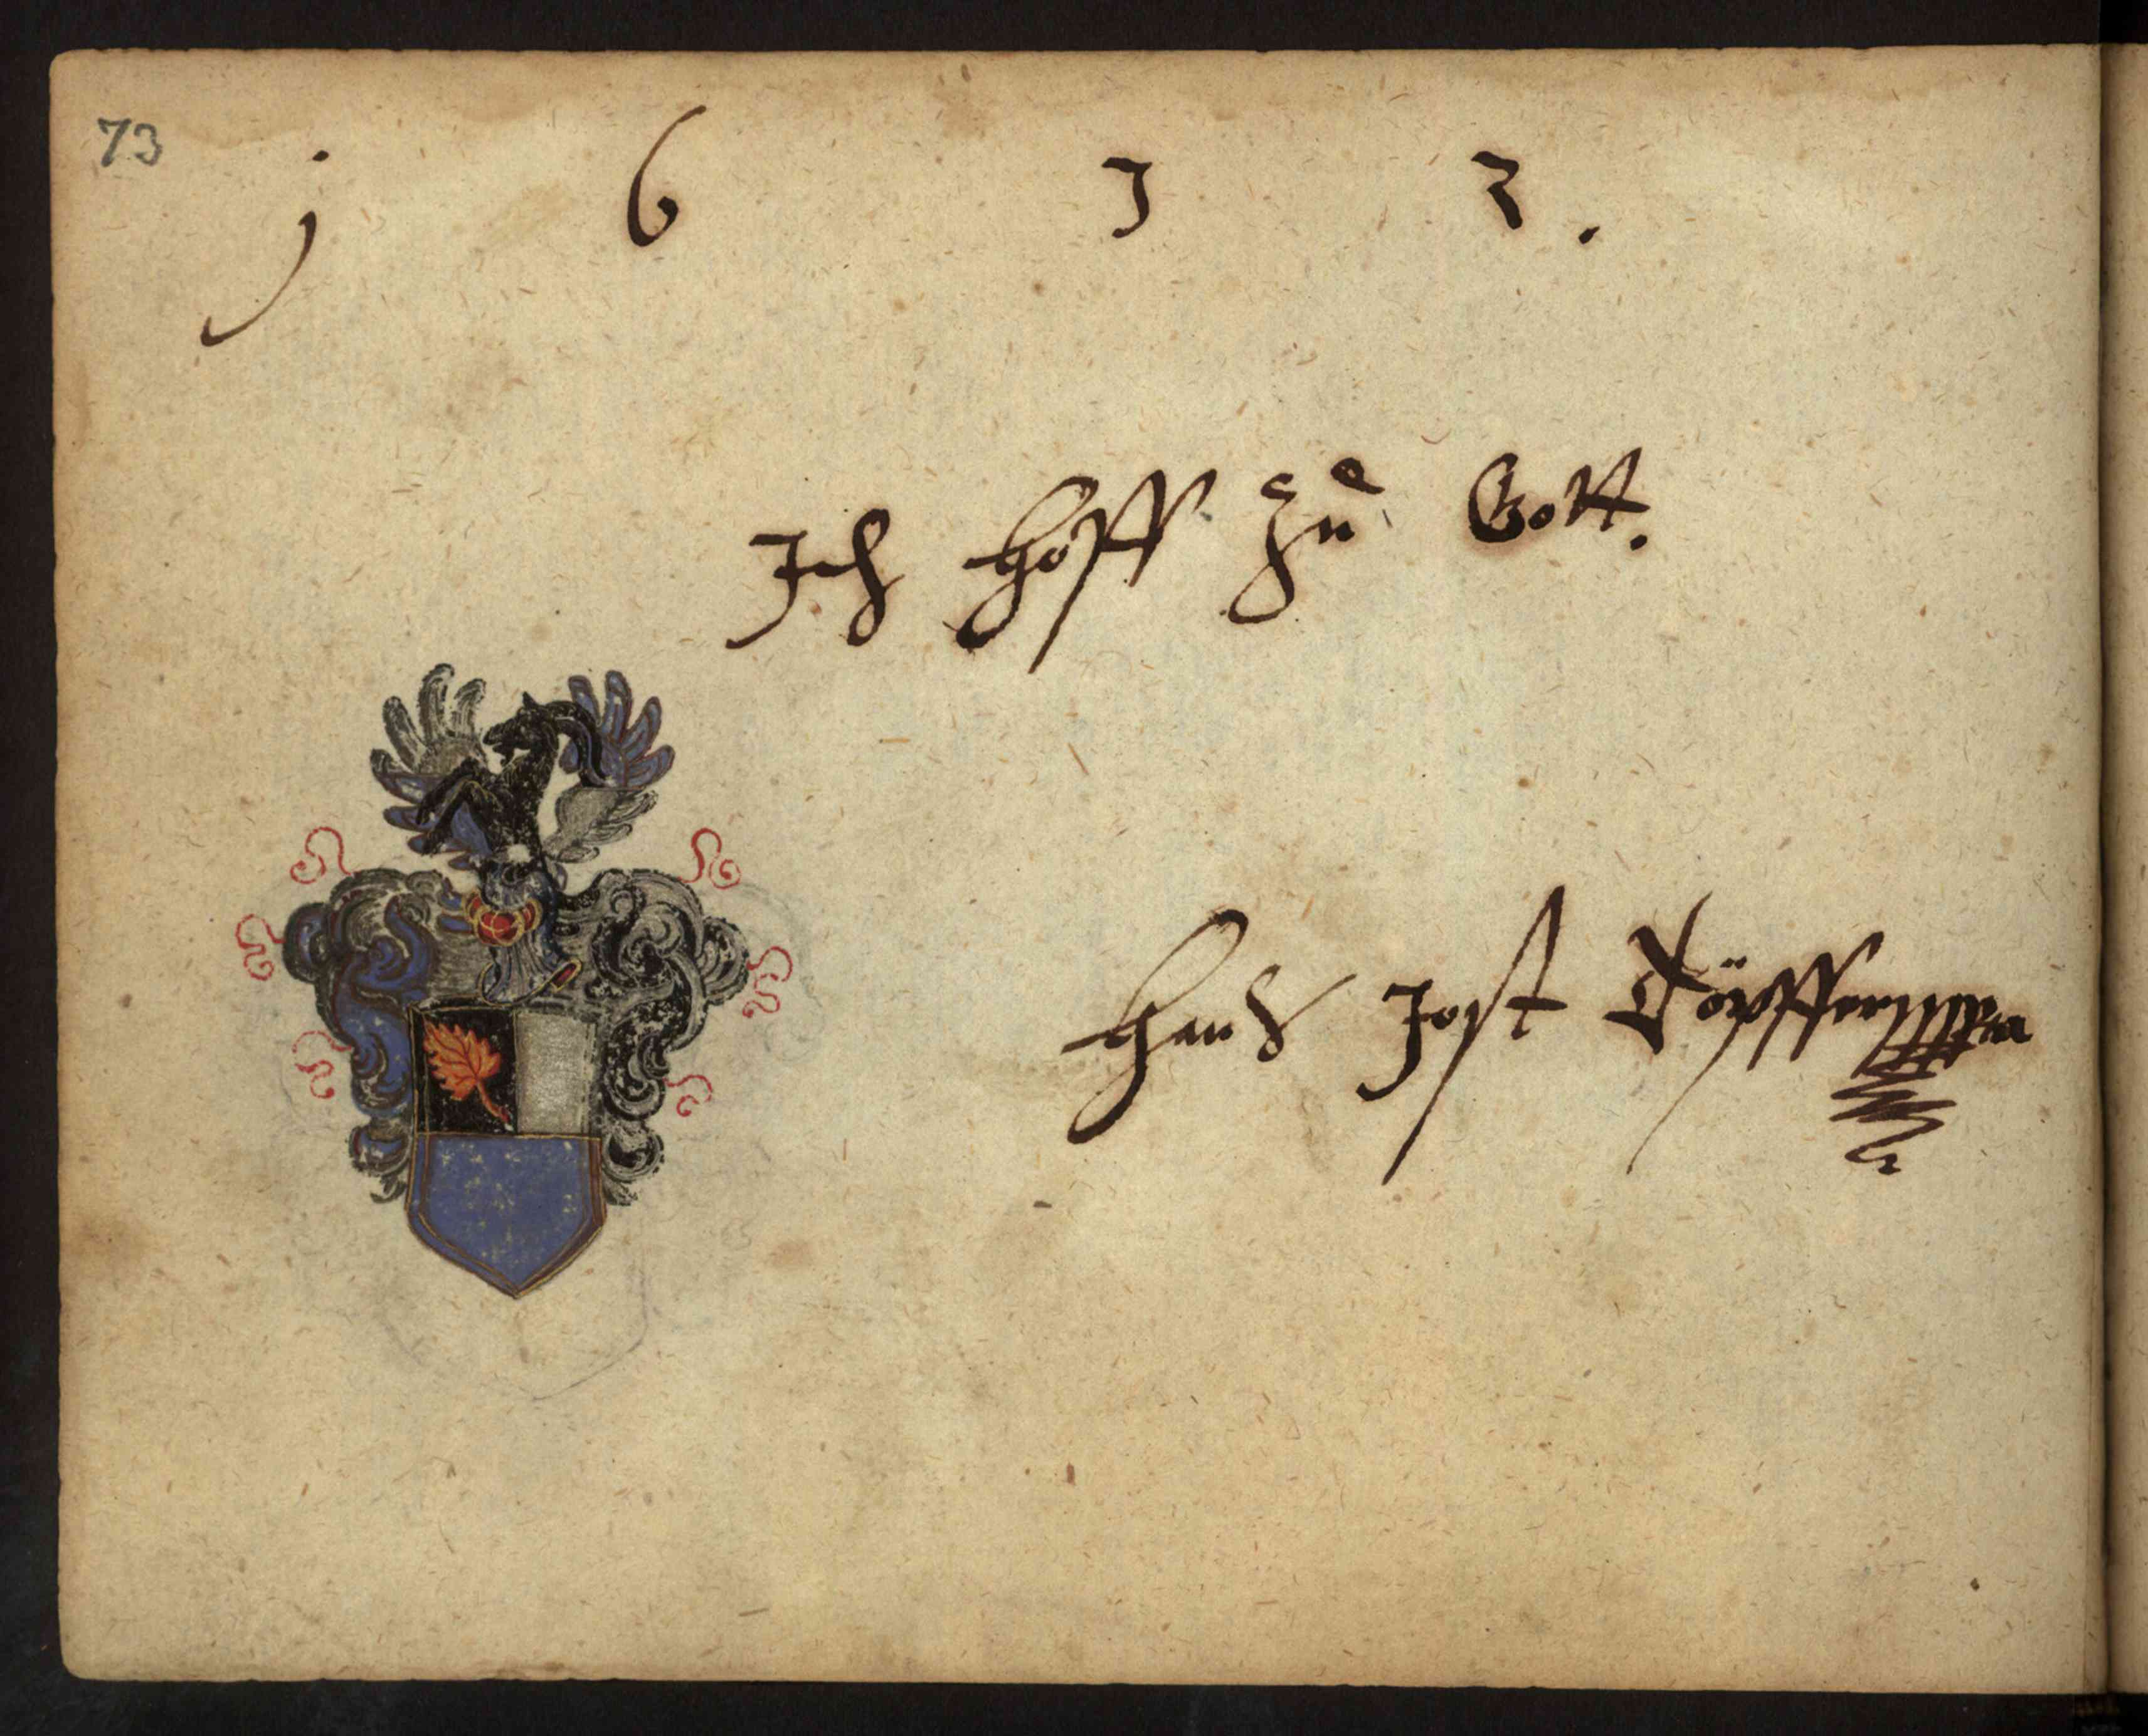 73
j 6 1 2.
Ich hoff zu Gott.
Hans Jost